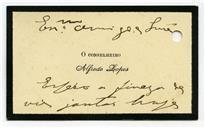 Ex.mo amigo e Snr.
O CONSELHEIRO
Alfredo Lopes
Espero a fineza de
vir jantar hoje